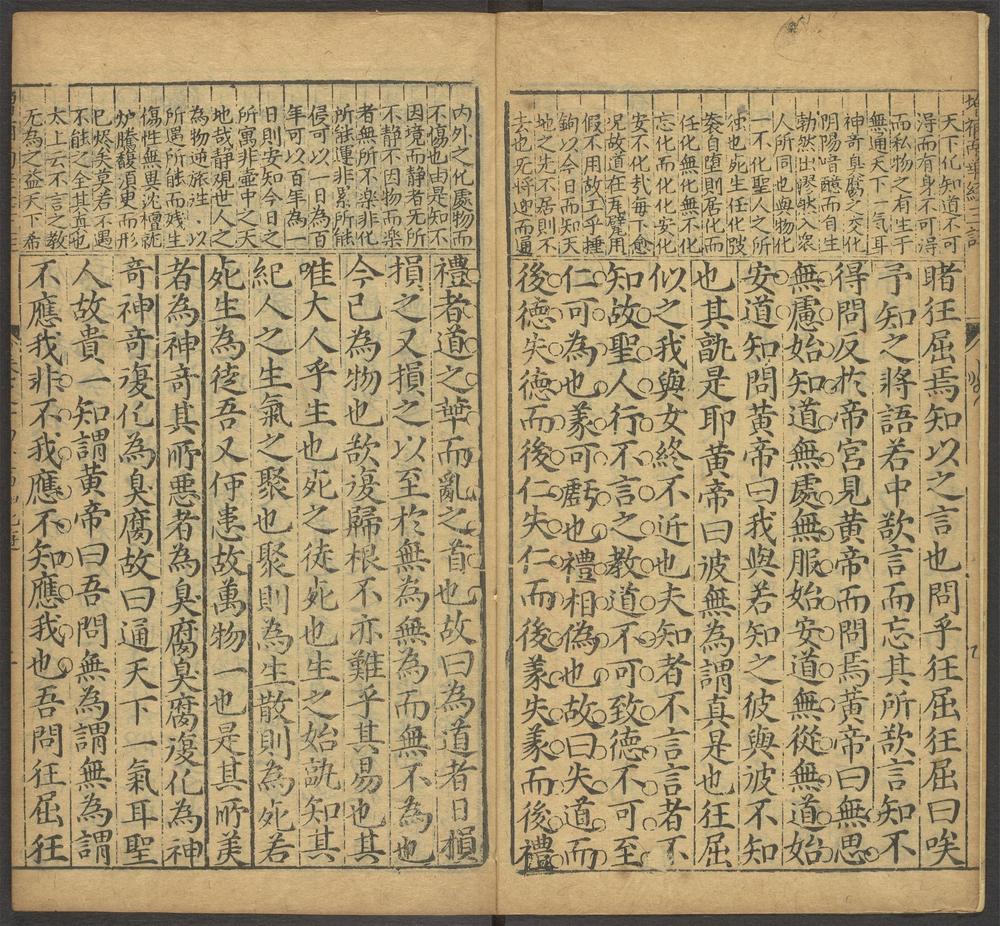 天下化知道不可
得而有身不可得
而私物之有生于
無通天下一氣耳
神奇臭腐之交化
陰陽喑醷而自生
勃然出膠然入衮
人所同也與物化
一不化聖人之所
独也死生任化弢
袠自堕則居化而
任化無化無不化
忘化而化化安化
安不化哉每下愈
况故道在屎𤮿用
假不用故工乎捶
鉤以今日而知天
地之先不居則不
去也无将迎而通
睹狂屈焉知以之言也問乎狂屈狂屈曰唉
予知之將語若中欲言而忘其所欲言知不
得問反於帝宮見黄帝而問焉黄帝曰無思
無慮始知道無處無服始安道無從無道始
安道知問黄帝曰我與若知之彼與彼不知
也其孰是耶黄帝曰彼無為謂真是也狂屈
似之我與女終不近也夫知者不言言者不
知故聖人行不言之教道不可致德不可至
仁可為也義可虧也禮相偽也故曰失道而
後德失德而後仁失仁而後義失義而後禮
内外之化處物而
不傷也由是知不
因境而静静者所
不静不因物而樂
者無所不樂非化
所能運非累所能
侵可以一日為百
年可以百年為一
日則安知今日之
所寓非壺中之天
地哉静观世人之
為物逆旅注以
所遇所能而残生
傷性無異沈檀就
炉騰馥須臾而形
已烬矣莫若不遇
不能之全其真也
太上云不言之教
无為之益天下希
禮者道之華而亂之首也故曰為道者日損
損之又損之以至於無為無為而無不為也
今已為物也欲復歸根不亦難乎其易也其
唯大人乎生也死之徒死也生之始孰知其
紀人之生氣之聚也聚則為生散則為死若
死生為徒吾又何患故萬物一也是其所美
者為神奇其所惡者為臭腐臭腐復化為神
奇神奇復化為臭腐故曰通天下一氣耳聖
人故貴一知謂黄帝曰吾問無為謂無為謂
不應我非不我應不知應我也吾問狂屈狂